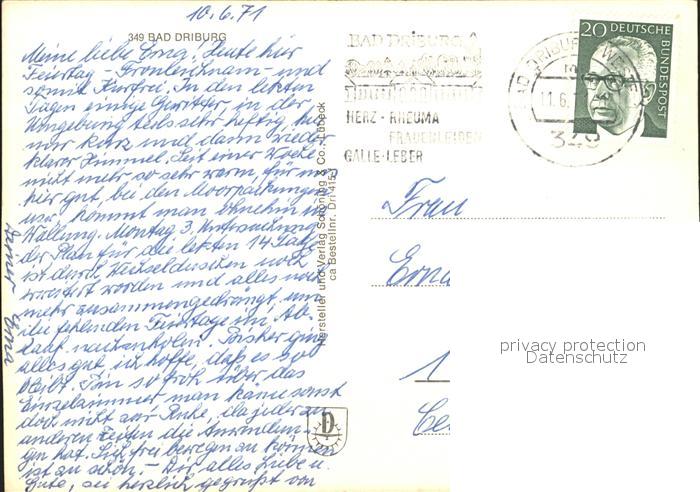 10.6.71
349 BAD DRIBURG
Meine liebe Erna! Heute hier
Feiertag - Fronleichnam - und
somit Kurfrei. In den letzten
Tagen einige Gewitter, in der
Umgebung teils sehr heftig, hier
nur kurz und dann wieder
klarer Himmel. Seit einer Woche
nicht mehr so sehr warm, für mich
hier gut, bei den Moorpackungen
usw. kommt man ohnehin in
Wallung. Montag 3. Untersuchung
der Plan für die letzten 14 Tage
ist durch Wechselduschen noch
erweitert worden und alles noch
mehr zusammengedrängt, um
die fehlenden Feiertage im Ab-
lauf nachzuholen. Bisher ging
alles gut, ich hoffe, daß es so
bleibt. Bin so froh über das
Einzelzimmer, man käme sonst
doch nicht zur Ruhe, da jeder zu
anderen Zeiten die Anwendun-
gen hat. Sich frei bewegen zu können
ist zu schön. - Dir alles Liebe u.
Gute, sei herzlich gegrüßt von
Erna
Hersteller und Verlag Schöning & Co., Lübeck
ca Bestellnr. Dri 4153
BAD DRIBURG
HERZ - RHEUMA
FRAUENLEIDEN
GALLE - LEBER
BAD DRIBURG, WESTF
11.6.
349
20 DEUTSCHE
BUNDESPOST
Frau
Erna
1
Ce
privacy protection
Datenschutz
D